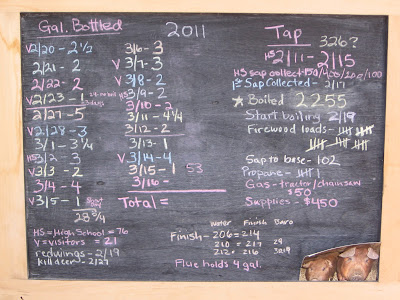 Gal. Bottled
2011
V 2/20 - 2 1/2
2/21 - 2
2/22 - 2
V 2/23 - 1
2/27 - 5
V 2/28 - 3
3/1 - 3 3/4
HS 3/2 - 3
V 3/3 - 2
3/4 - 4
V 3/5 - 1
28 3/4
HS = High School = 76
V = visitors = 21
redwings - 2/19
killdeer - 2/27
3/6 - 3
V 3/7 - 3
V 3/8 - 2
HS 3/9 - 2
3/10 - 2
3/11 - 4 1/4
3/12 - 2
3/13 - 1
V 3/14 - 4
3/15 - 1 53
3/16 -
Total =
Tap 326?
HS 2/11 - 2/15
HS sap collect
1st Sap Collected - 2/17
★ Boiled 2255
Start boiling 2/19
Firewood loads -
Sap to base - 102
Propane -
Gas - tractor/chainsaw
$50
Supplies - $450
water Finish Baro
Finish - 206 = 214
210 = 217 29
212 = 216
Flue holds 4 gal.